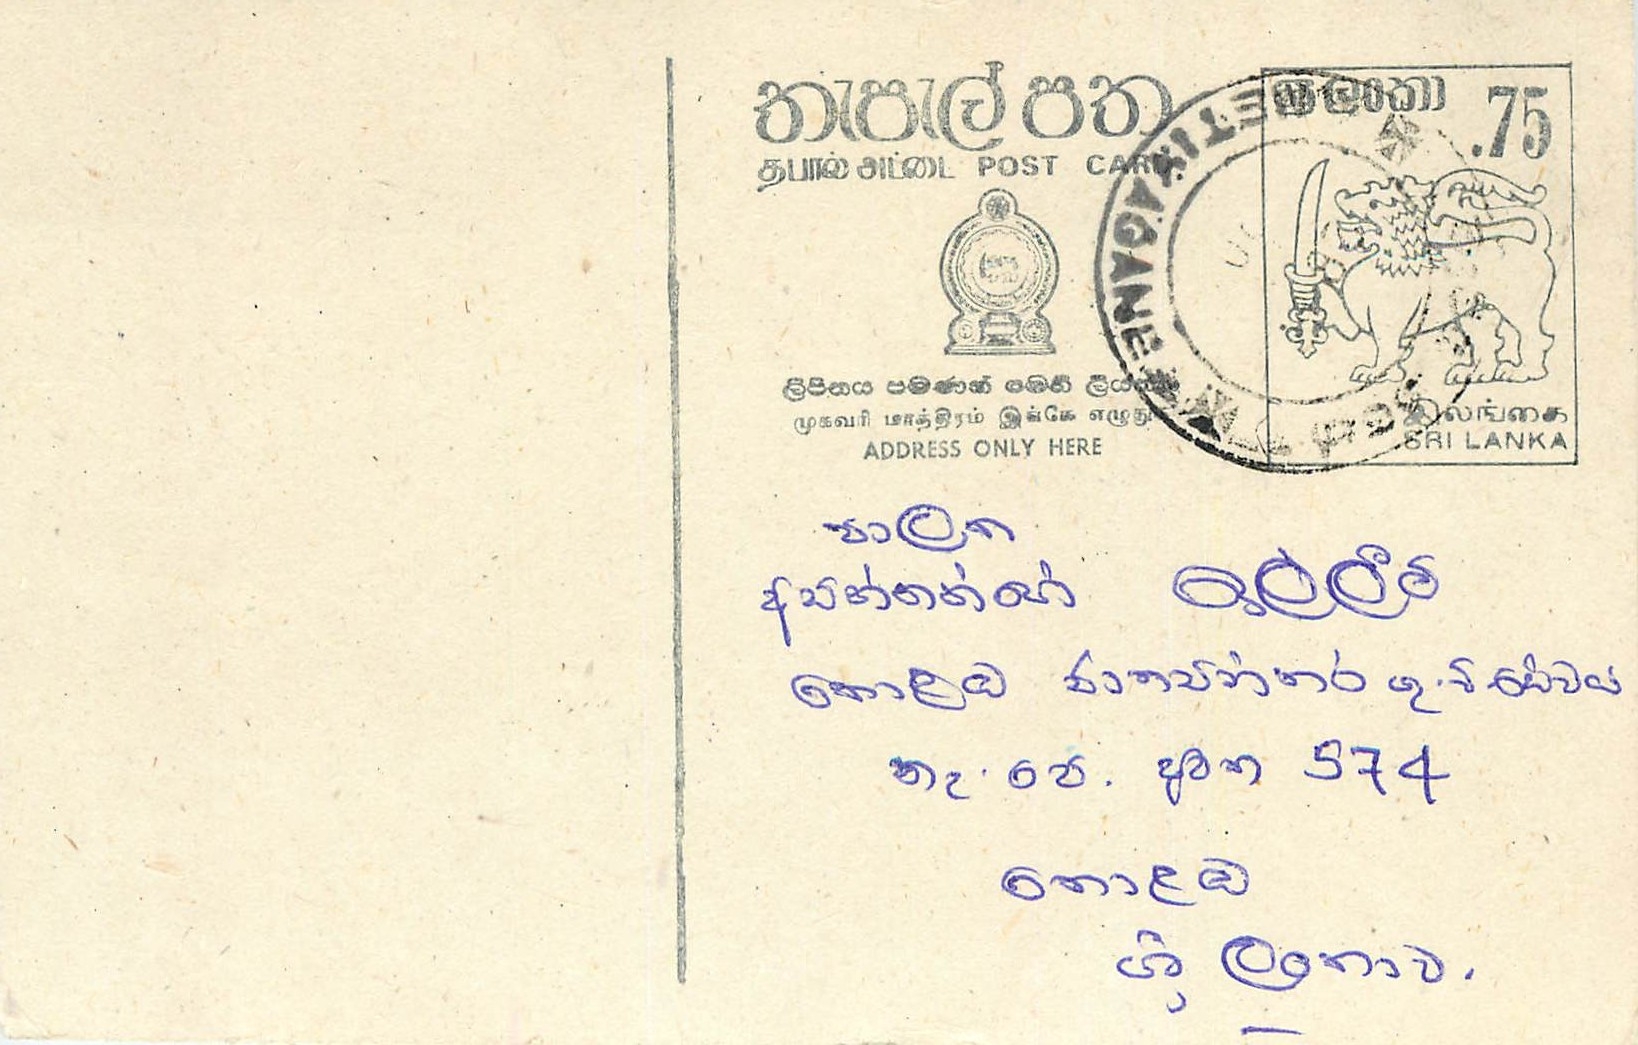 තැපැල් පත
தபால் அட்டை POST CARD
ශ්‍රී ලංකා .75
ලිපිනය පමණක් මෙහි ලියන්න
முகவரி மாத்திரம் இங்கே எழுதுக
ADDRESS ONLY HERE
இலங்கை
SRI LANKA
පාලක
කොළඹ ජාත්‍යන්තර ගු.වි සේවය
තැ. පෙ. අංක 574
කොළඹ
ශ්‍රී ලංකාව.